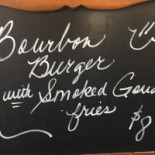 Bourbon
Burger
with Smoked Goud
fries
$8